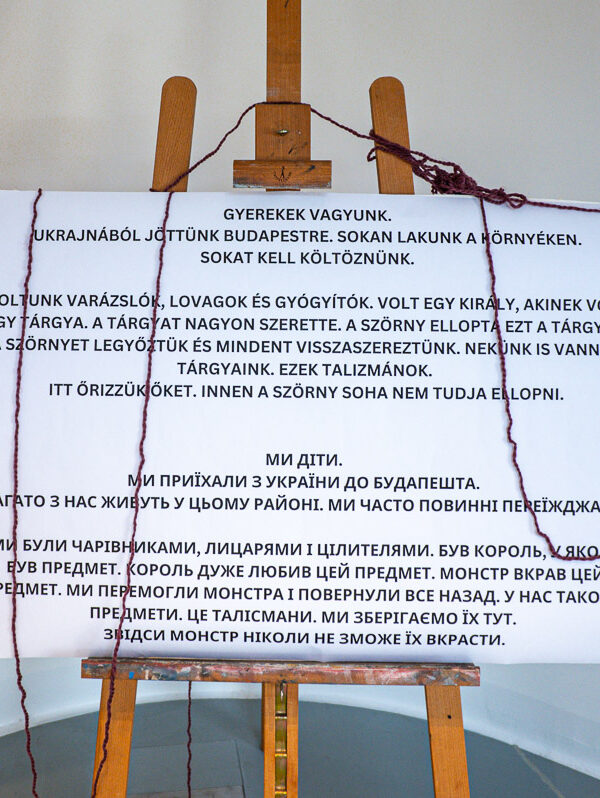 GYEREKEK VAGYUNK.
UKRAJNÁBÓL JÖTTÜNK BUDAPESTRE. SOKAN LAKUNK A KÖRNYÉKEN.
SOKAT KELL KÖLTÖZNÜNK.
OLTUNK VARÁZSLÓK, LOVAGOK ÉS GYÓGYÍTÓK. VOLT EGY KIRÁLY, AKINEK VO
GY TÁRGYA. A TÁRGYAT NAGYON SZERETTE. A SZÖRNY ELLOPTA EZT A TÁRGY
A SZÖRNYET LEGYŐZTÜK ÉS MINDENT VISSZASZEREZTÜNK. NEKÜNK IS VANN
TÁRGYAINK. EZEK TALIZMÁNOK.
ITT ŐRIZZÜK ŐKET. INNEN A SZÖRNY SOHA NEM TUDJA ELLOPNI.
МИ ДІТИ.
МИ ПРИЇХАЛИ З УКРАЇНИ ДО БУДАПЕШТА.
АГАТО З НАС ЖИВУТЬ У ЦЬОМУ РАЙОНІ. МИ ЧАСТО ПОВИННІ ПЕРЕЇЖДЖА
МИ БУЛИ ЧАРІВНИКАМИ, ЛИЦАРЯМИ І ЦІЛИТЕЛЯМИ. БУВ КОРОЛЬ, У ЯКО
БУВ ПРЕДМЕТ. КОРОЛЬ ДУЖЕ ЛЮБИВ ЦЕЙ ПРЕДМЕТ. МОНСТР ВКРАВ ЦЕЙ
РЕДМЕТ. МИ ПЕРЕМОГЛИ МОНСТРА І ПОВЕРНУЛИ ВСЕ НАЗАД. У НАС ТАКО
ПРЕДМЕТИ. ЦЕ ТАЛІСМАНИ. МИ ЗБЕРІГАЄМО ЇХ ТУТ.
ЗВІДСИ МОНСТР НІКОЛИ НЕ ЗМОЖЕ ЇХ ВКРАСТИ.